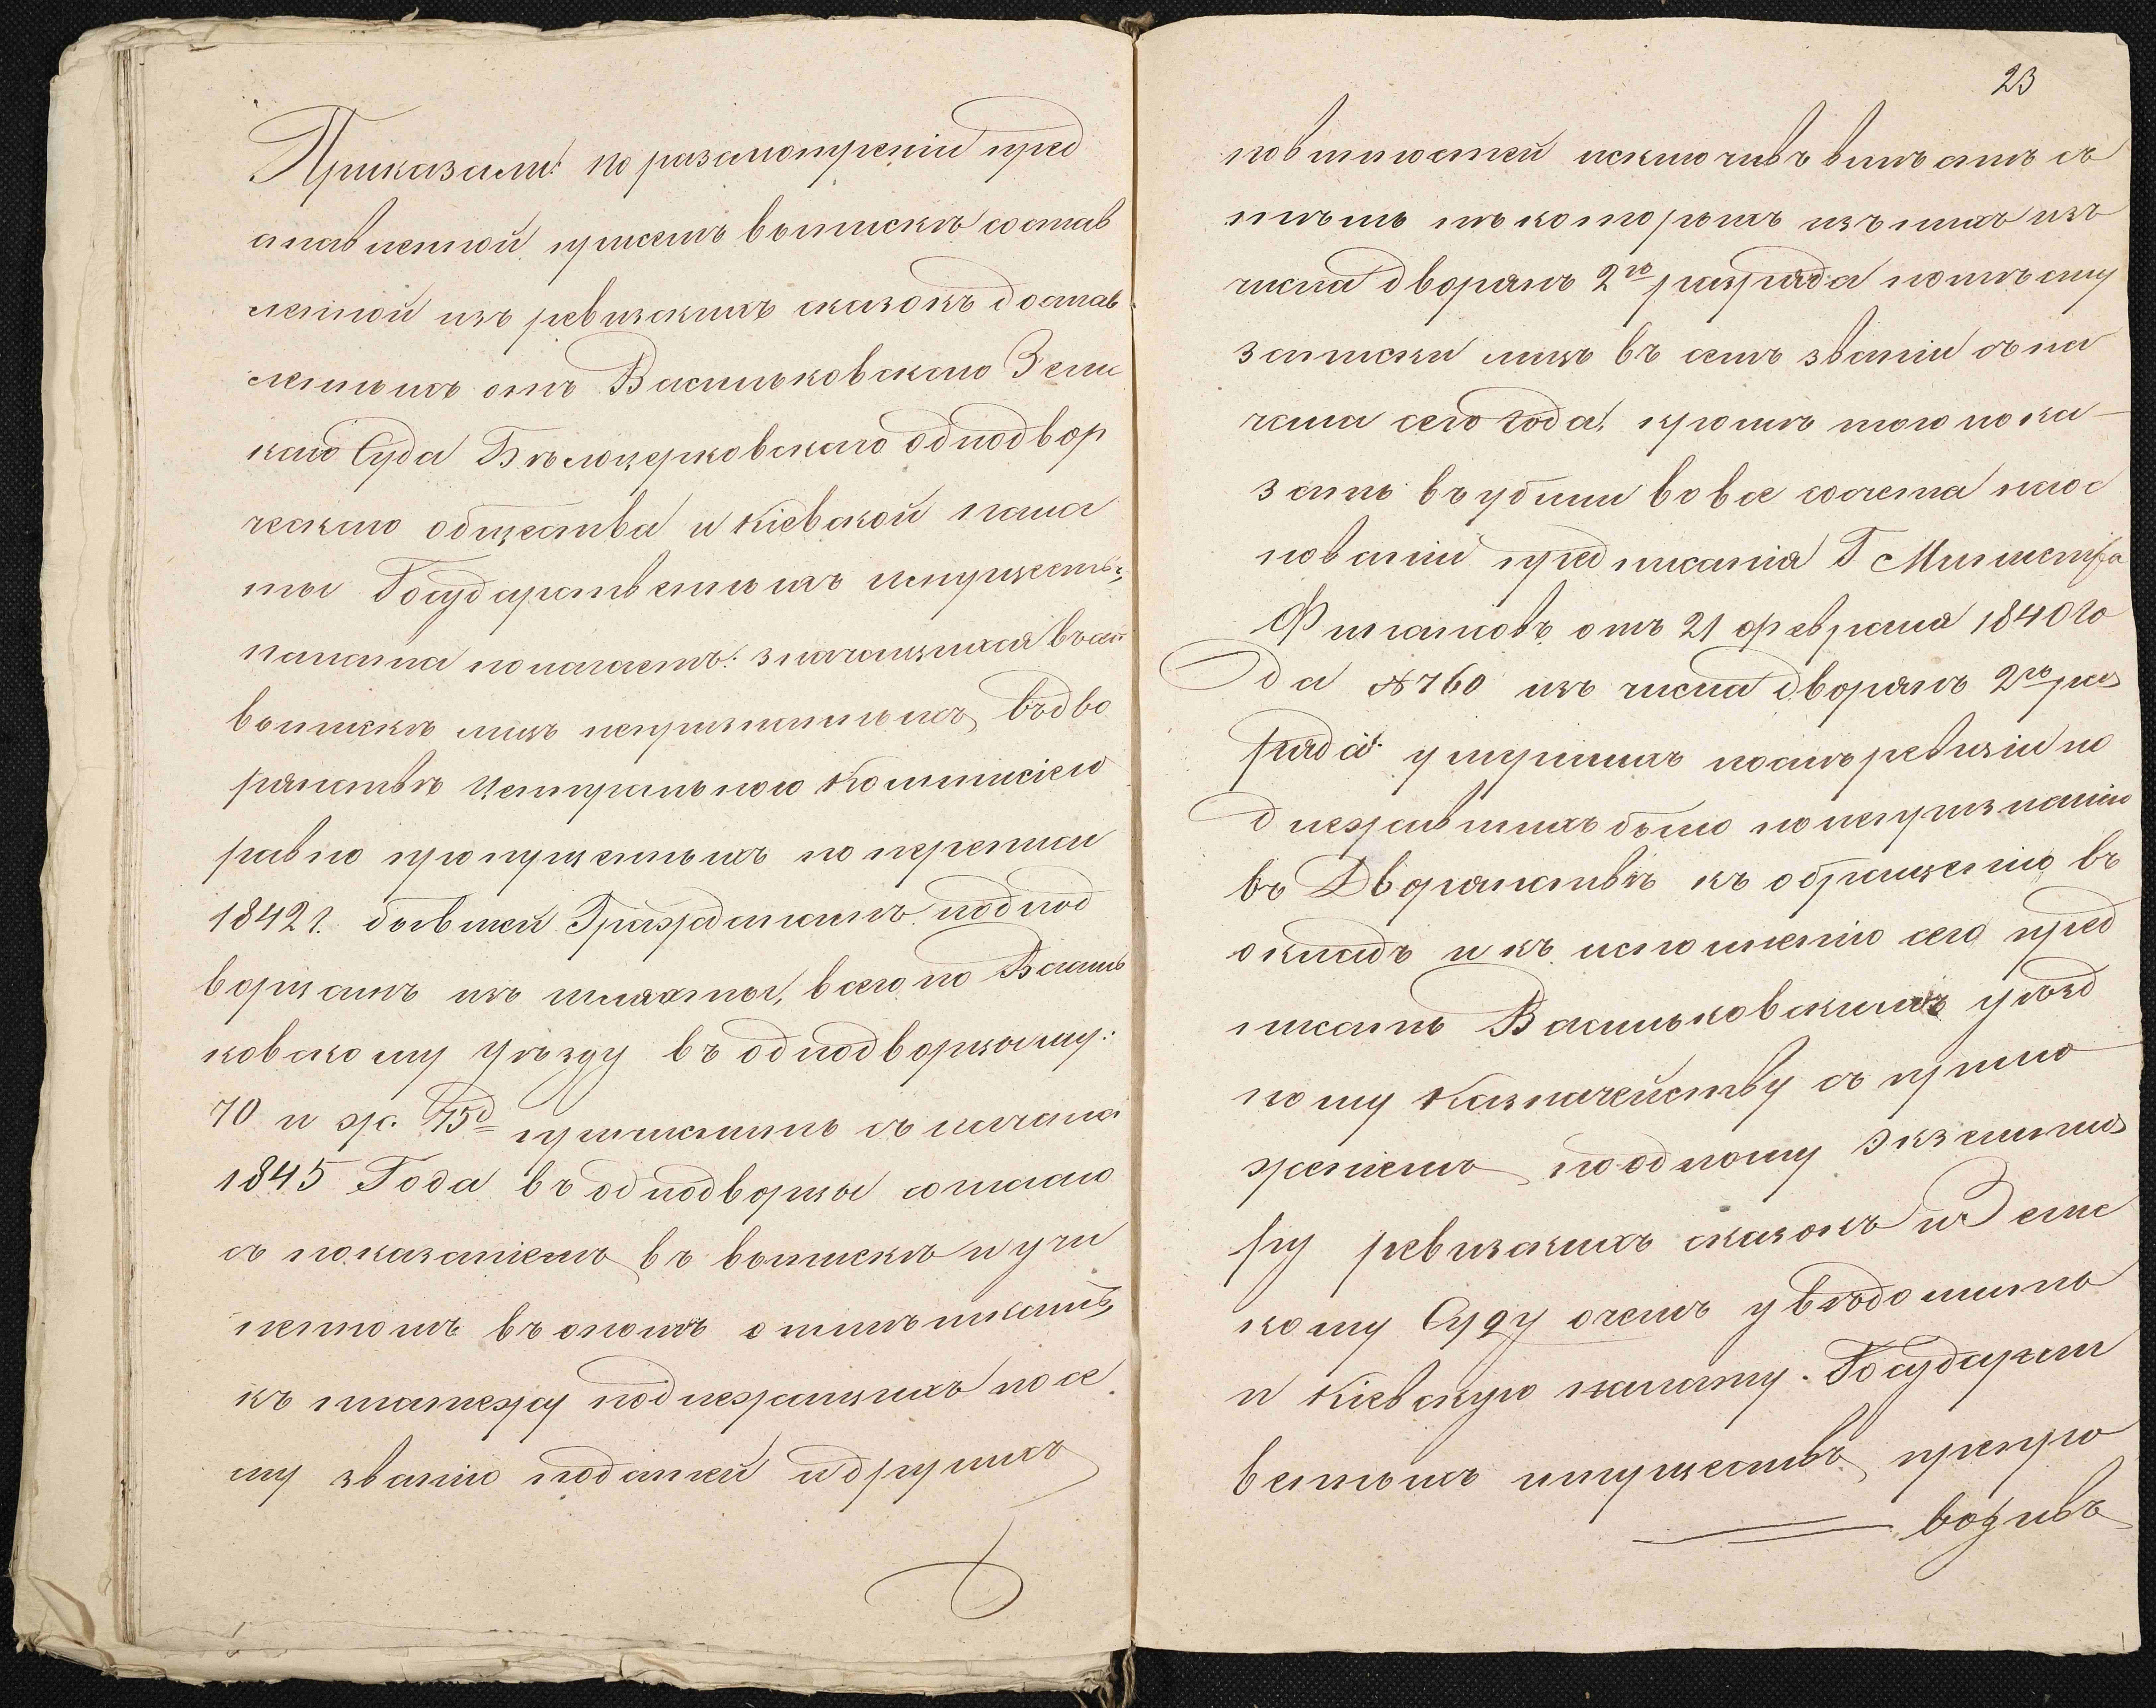 Приказали: по разсмотреніи пред
ставленной присемъ выписки состав
ленной изъ ревизскихъ сказокъ достав
ленныхъ отъ Васильковскаго Земс
каго Суда Бѣлоцерковскаго однодвор
ческаго общества и Кіевской пала
ты Государственныхъ имуществъ,
палата полагаетъ: значащихся въ сей
выпискѣ лицъ непризнанныхъ въ дво
рянствѣ Центральною Коммисіею
равно пропущенныхъ по переписи
1842 г. бывшей Гражданамъ и однод
ворцамъ изъ шляхты, всего по Василь
ковскому уѣзду въ однодворцы му:
70 и ж. 75 д причислить съ начала
1845 Года въ однодворцы согласно
съ показаніемъ въ выпискѣ и учи
ненномъ въ ономъ отмѣткамъ,
къ платежу подлежащихъ по се
му званію податей и другихъ
23
повинностей исключивъ вмѣстѣ съ
тѣмъ нѣкоторыхъ изъ нихъ изъ
числа дворянъ 2го разряда потому
записки лицъ въ семъ званіи съ на
чала сего года, кромѣ того пока-
зать въ убыли вовсе со счета на ос
нованіи предписанія Г Министра
Финансовъ отъ 21 февраля 1840 го
да №760 изъ числа дворянъ 2го раз
ряда умершихъ послѣ ревизіи по
длежавшихъ было по непризнанію
въ Дворянствѣ къ обращенію въ
окладъ и къ исполненію сего пред
писать Васильковскому уѣзд
ному Казначейству съ прило
женіемъ по одному экземпля
ру ревизскихъ сказокъ и Земс
кому Суду о чемъ увѣдомить
и Кіевскую палату Государст
венныхъ имуществъ, препро
водивъ